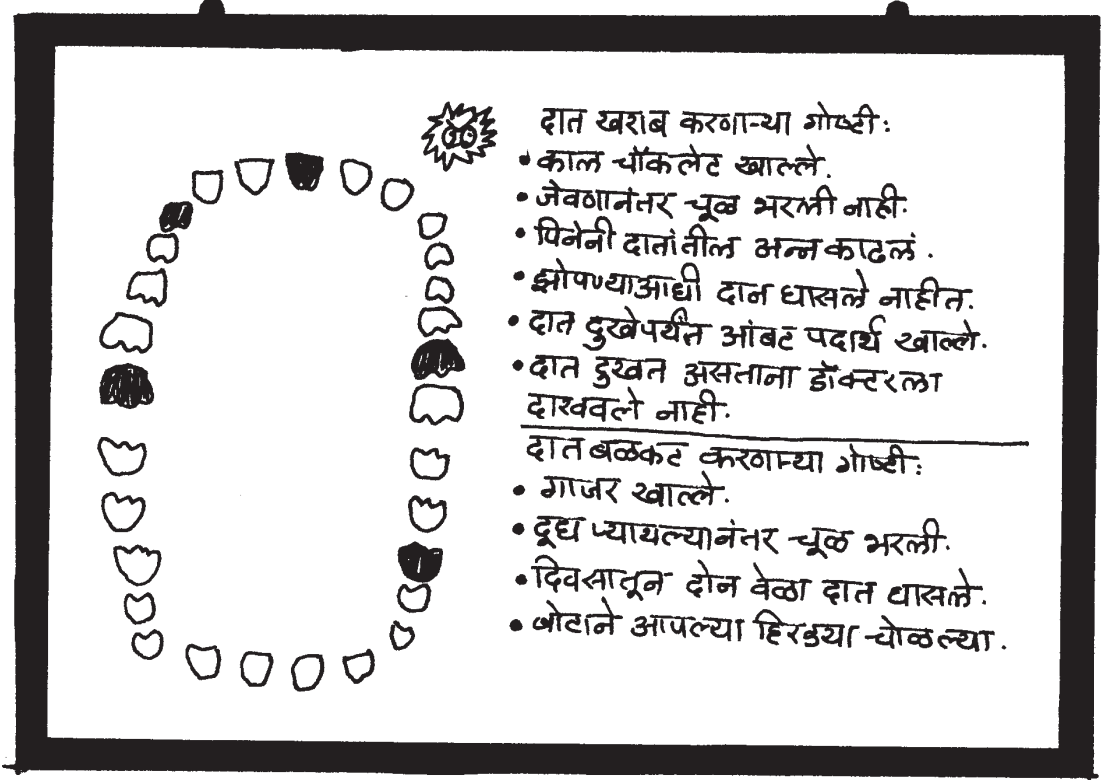 दात खराब करणाऱ्या गोष्टी:
• काल चॉकलेट खाल्ले.
• जेवणानंतर चूळ भरली नाही.
• पिनेनी दातांतील अन्न काढलं.
• झोपण्याआधी दान घासले नाहीत.
• दात दुखेपर्यंत आंबट पदार्थ खाल्ले.
• दात दुखत असताना डॉक्टरला
दाखवले नाही.
दात बळकट करणाऱ्या गोष्टी:
• गाजर खाल्ले.
• दूध प्यायल्यानंतर चूळ भरली.
• दिवसातून दोन वेळा दात घासले.
• बोटाने आपल्या हिरड्या चोळल्या.